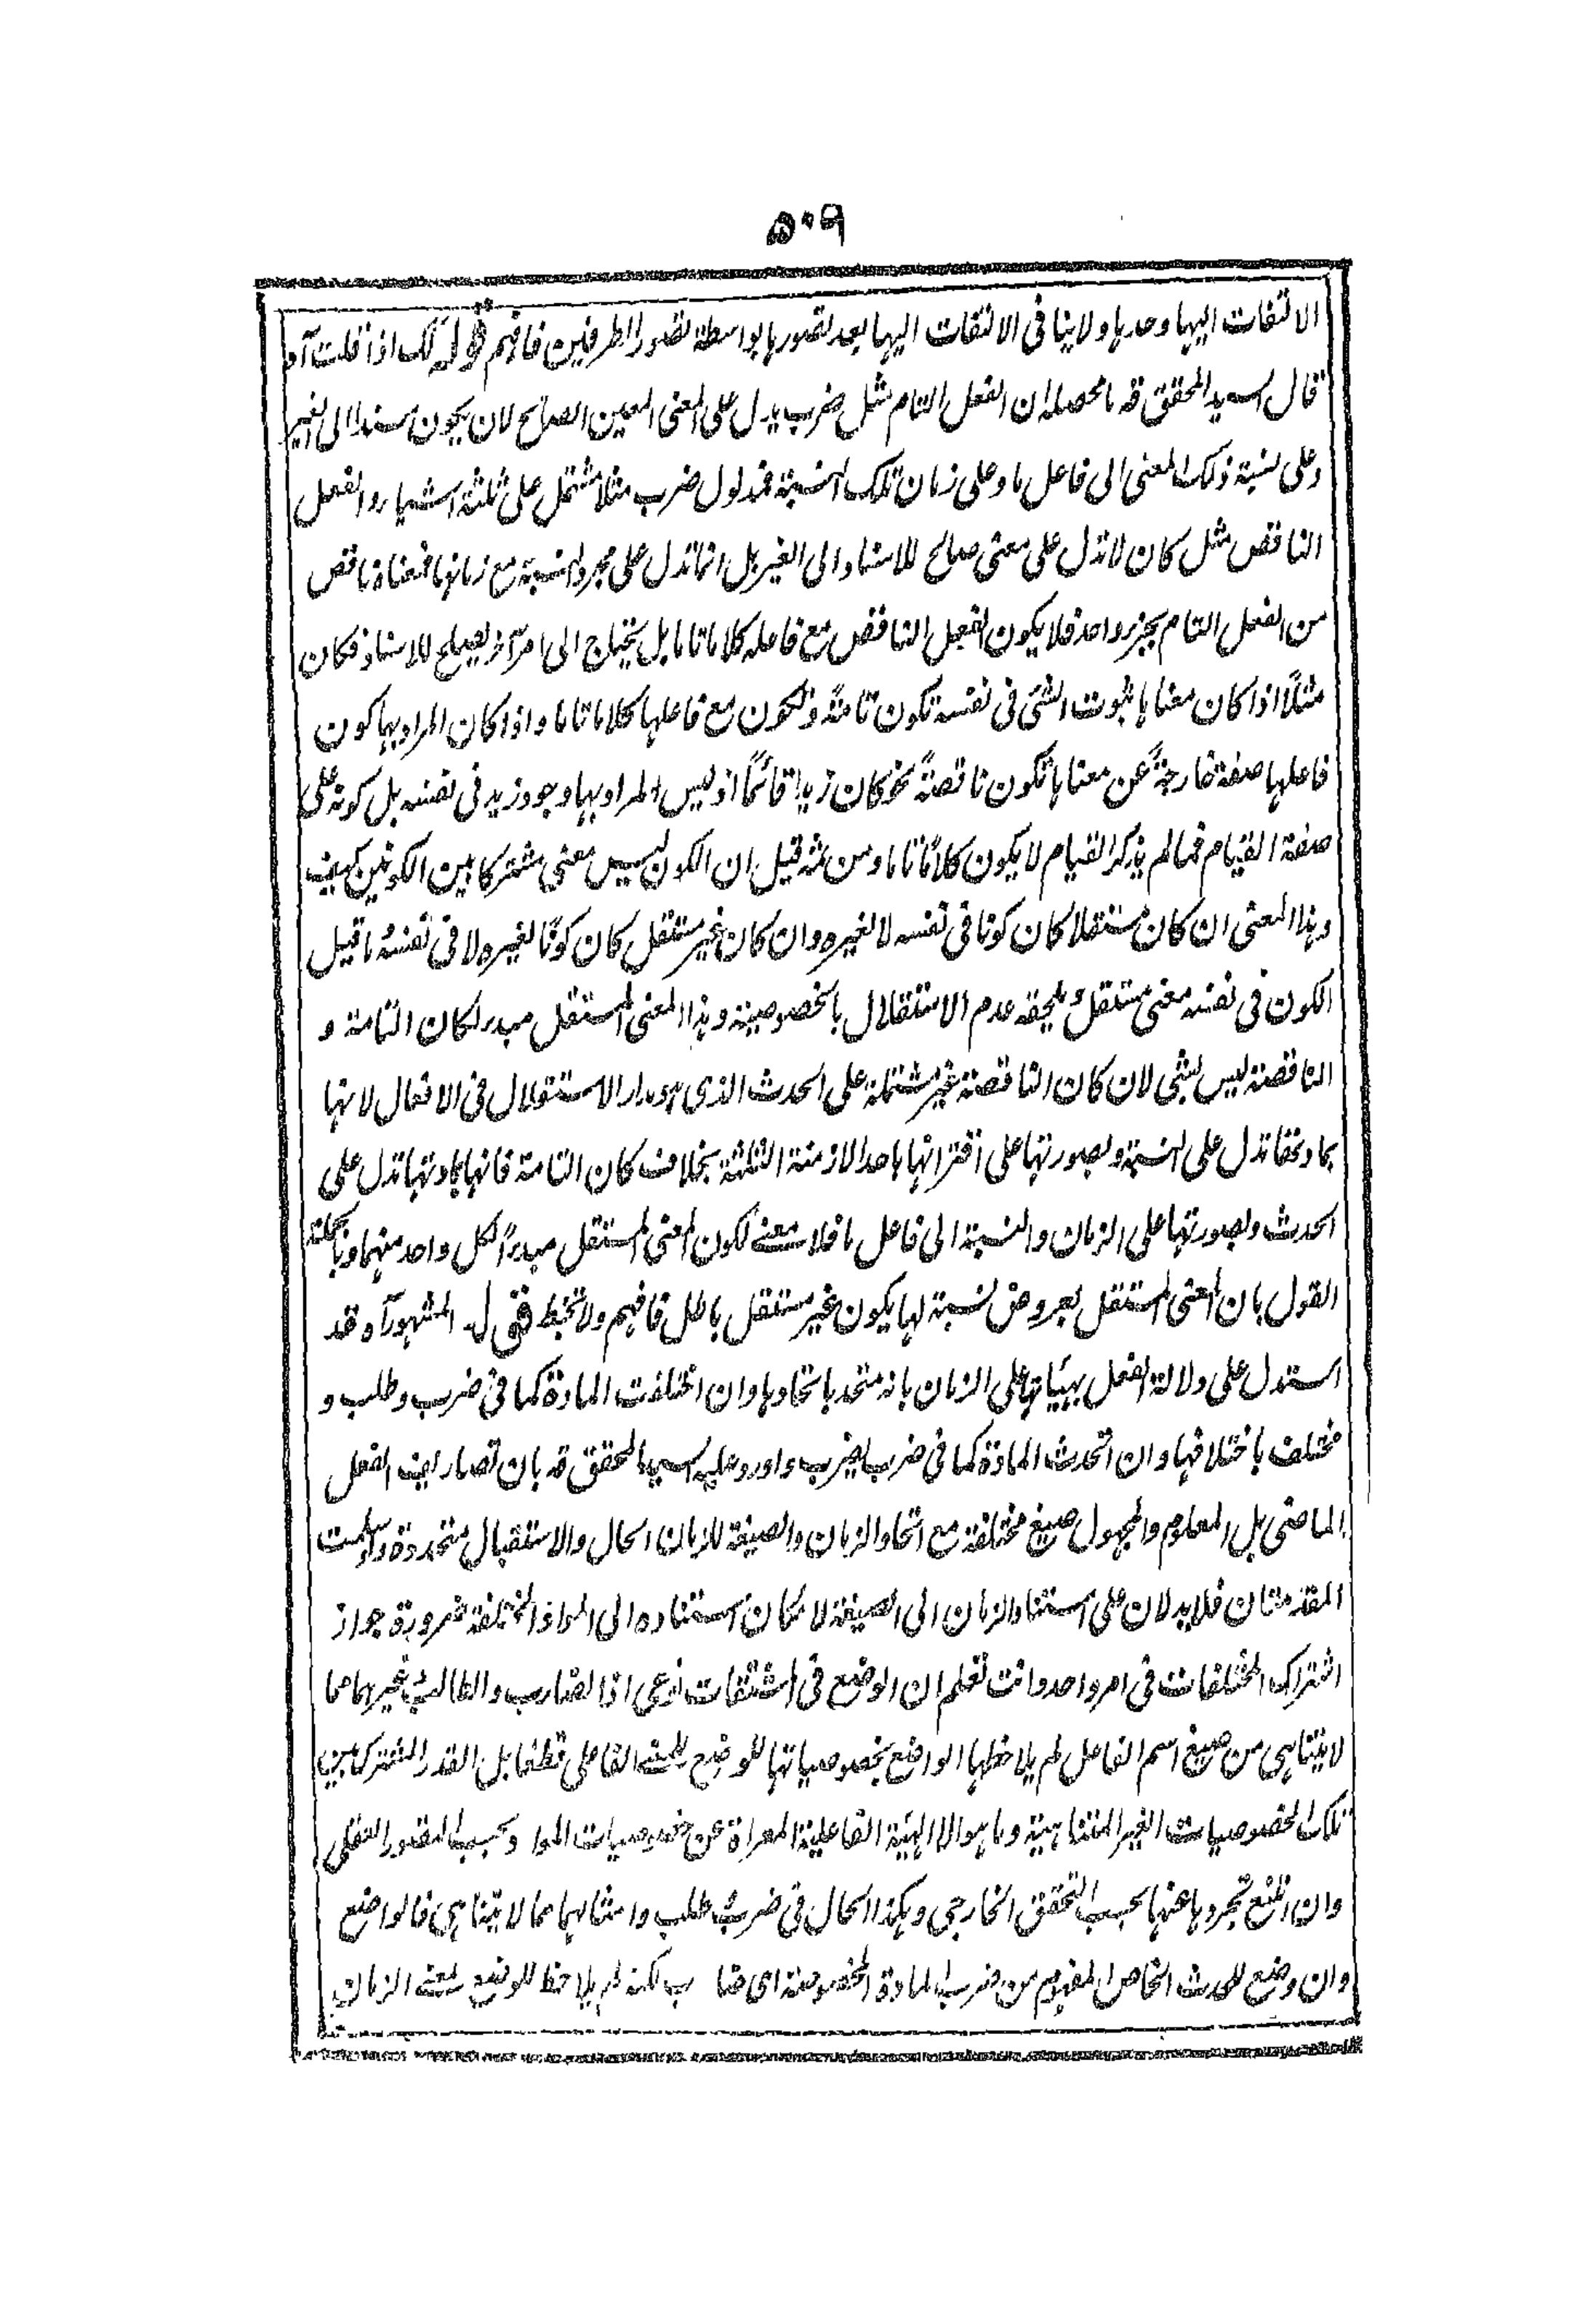 ٥٠٩
الالتفات اليها وحدها ولاينافى الالتفات اليها بعد تصورها بواسطة تصور الطرفين فافهم قوله لك اذا قلت آه
قال السيد المحقق قده ما محصله ان الفعل التام مثل ضرب يدل على المعنى المعين الصالح لان يكون مسندا الى الغير
وعلى نسبة ذلك المعنى الى فاعل ما وعلى زمان تلك النسبة فمدلول ضرب مثلا مشتمل على ثلثة اشياء والفعل
الناقص مثل كان لاتدل على معنى صالح للاسناد الى الغير بل انما تدل على مجرد النسبة مع زمانها فمعناه ناقص
من الفعل التام بجزء واحد فلا يكون الفعل الناقص مع فاعله كلاما تاما بل يحتاج الى امر آخر يصلح للاسناد فكان
مثلاً اذا كان معناها ثبوت الشئ فى نفسه تكون تامةً وتكون مع فاعلها كلاما تاما واذا كان المراد بها كون
فاعلها صفة خارجةً عن معناها تكون ناقصةً نحو كان زيد قائماً اذ ليس المراد بها وجود زيد فى نفسه بل كونه على
صفة القيام فما لم يذكر القيام لا يكون كلاماً تاما ومن ثمه قيل ان الكون ليس معنى مشتركا بين الكونين كيف
وهذا المعنى ان كان مستقلا كان كونا فى نفسه لا لغيره وان كان غير مستقل كان كونًا لغيره لا فى نفسه ما قيل
الكون فى نفسه معنى مستقل ويلحقه عدم الاستقلال بالخصوصية وهذا المعنى المستقل مبدء لكان التامة و
الناقصة ليس بشئ لان كان الناقصة غير مشتملة على الحدث الذى هو مدار الاستقلال فى الافعال لانها
بمادتها تدل على النسبة وبصورتها على اقترانها باحد الازمنة الثلثة بخلاف كان التامة فانها بمادتها تدل على
الحدث وبصورتها على الزمان والنسبة الى فاعل ما فلا معنے لكون المعنى المستقل مبدءاً لكل واحد منهما وبالجملة
القول بان المعنى المستقل بعروض نسبة لها يكون غير مستقل باطل فافهم ولا تخبط قوله المشهور آه قد
استدل على دلالة الفعل بهيأتها على الزمان بانه متحد باتحادها وان اختلفت المادة كما فى ضرب وطلب و
مختلف باختلافها وان اتحدت المادة كما فى ضرب يضرب واورد عليه السيد المحقق قده بان تصاريف الفعل
الماضى بل المعلوم والمجهول صيغ مختلفة مع اتحاد الزمان والصيغة للزمان الحال والاستقبال متحدة ولو سلمت
المقدمتان فلا يدلان على استناد الزمان الى الصيغة لامكان استناده الى المواد المختلفة ضرورة جواز
اشتراك المختلفات فى امر واحد وانت تعلم ان الوضع فى المشتقات نوعى اذ الضارب والطالب وغيرهما مما
لايتناهى من صيغ اسم الفاعل لم يلاحظها الواضع بخصوصياتها للوضع للمعنے الفاعلى قطعا بل القدر المشترك بين
تلك الخصوصيات الغير المتناهية وما هو الا الهيئة الفاعلية المعراة عن خصوصيات المواد وبحسب التصور العقلى
وان امتنع تجردها عنها بحسب التحقق الخارجى وهكذا الحال فى ضرب وطلب وامثالهما مما لايتناهى فالواضع
وان وضع للحدث الخاص المفهوم من ضرب المادة المخصوصة اى ضا ب لكنه لم يلاحظ للوضع لمعنے الزمان